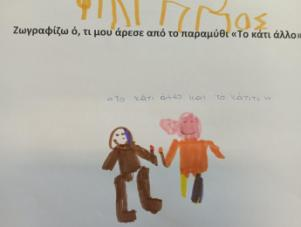 Ζωγραφίζω ό, τι μου άρεσε από το παραμύθι «Το κάτι άλλο»
«Το κάτι άλλο και το κάτιτι»